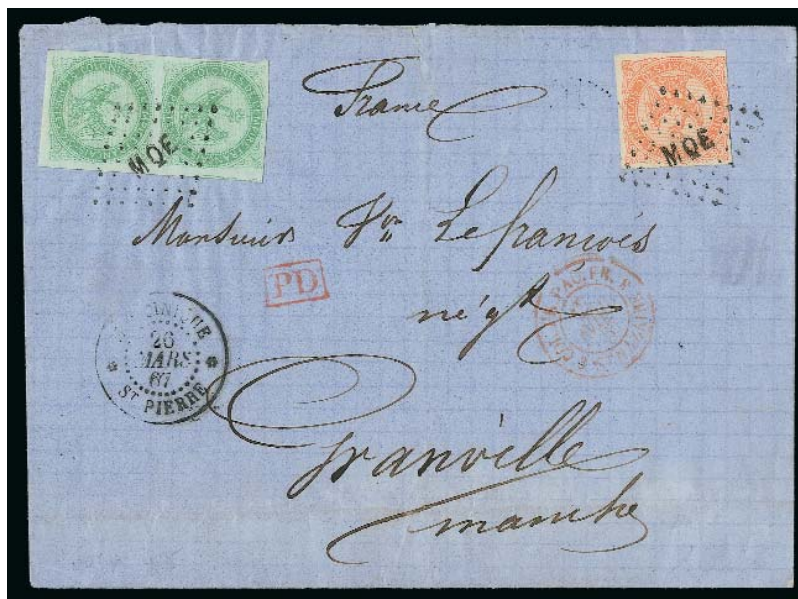 France
MQE
MQE
Monsieur Vor Lefrancois
PD
négt
MARTINIQUE
26
MARS
67
ST PIERRE
Granville
manche